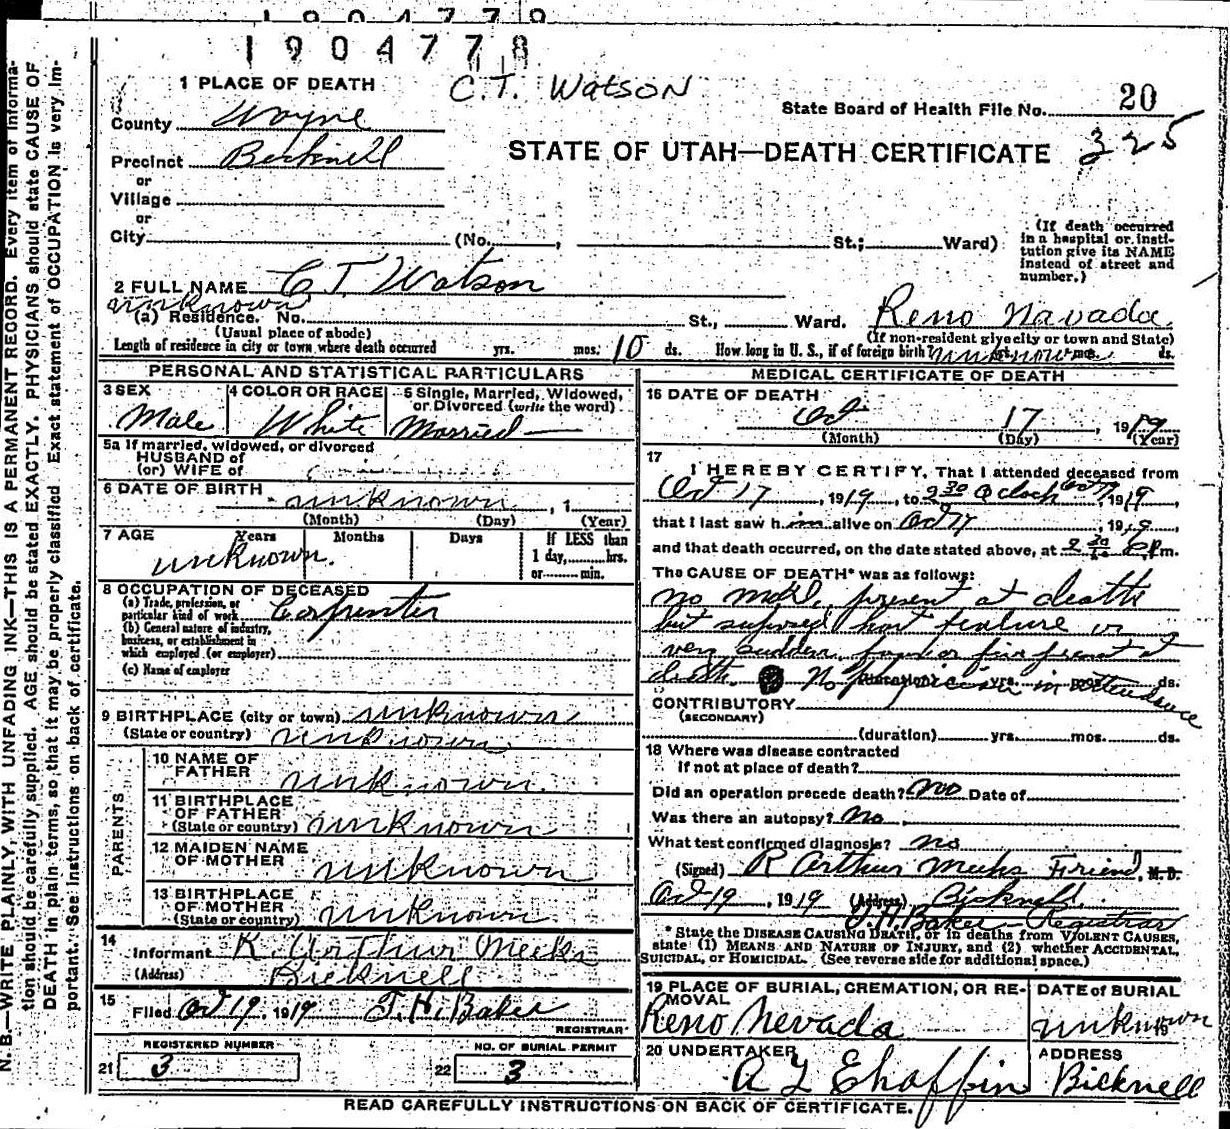 1904779
1904778
C.T. Watson
1 PLACE OF DEATH
County Wayne
State Board of Health File No. 20
325
Precinct Bicknell
STATE OF UTAH—DEATH CERTIFICATE
or
Village
or
City (No. , St.; Ward)
(If death occurred in a hospital or institution give its NAME instead of street and number.)
2 FULL NAME C T. Watson
unknown
(a) Residence. No. St., Ward. Reno Navada.
(Usual place of abode) (If non-resident give city or town and State)
Length of residence in city or town where death occurred yrs. mos. 10 ds. How long in U. S., if of foreign birth? unknown mos. ds.
PERSONAL AND STATISTICAL PARTICULARS
3 SEX Male
4 COLOR OR RACE White
5 Single, Married, Widowed, or Divorced (write the word) Married
5a If married, widowed, or divorced
HUSBAND of
(or) WIFE of
6 DATE OF BIRTH unknown, 1
(Month) (Day) (Year)
7 AGE Years Months Days If LESS than
unknown. 1 day, hrs.
or min.
8 OCCUPATION OF DECEASED
(a) Trade, profession, or particular kind of work Carpenter
(b) General nature of industry, business, or establishment in which employed (or employer)
(c) Name of employer
9 BIRTHPLACE (city or town) unknown
(State or country) unknown
PARENTS
10 NAME OF FATHER unknown.
11 BIRTHPLACE OF FATHER (State or country) unknown
12 MAIDEN NAME OF MOTHER unknown
13 BIRTHPLACE OF MOTHER (State or country) unknown.
14
Informant R. Arthur Meeks
(Address) Bicknell
15
Filed Oct 19, 1919 J. H. Baker
REGISTRAR
REGISTERED NUMBER
21 3
NO. OF BURIAL PERMIT
22 3
MEDICAL CERTIFICATE OF DEATH
16 DATE OF DEATH
Oct 17, 1919
(Month) (Day) (Year)
17
I HEREBY CERTIFY, That I attended deceased from
Oct 17, 1919, to 9 30 O clock Oct 17, 1919,
that I last saw him alive on Oct 17, 1919,
and that death occurred, on the date stated above, at 9 30 P.m.
The CAUSE OF DEATH* was as follows:
no mdl. present at death
but suposed hart failure
very sudden, present at
death. No physician in attendance
(duration) yrs. mos. ds.
CONTRIBUTORY
(SECONDARY)
(duration) yrs. mos. ds.
18 Where was disease contracted
if not at place of death?
Did an operation precede death? No Date of
Was there an autopsy? No
What test confirmed diagnosis? no
(Signed) R Arthur Meeks Friend, M.D.
Oct 19, 1919 (Address) Bicknell
J. H. Baker Registrar
* State the DISEASE CAUSING DEATH, or in deaths from VIOLENT CAUSES,
state (1) MEANS AND NATURE OF INJURY, and (2) whether ACCIDENTAL,
SUICIDAL, or HOMICIDAL. (See reverse side for additional space.)
19 PLACE OF BURIAL, CREMATION, OR REMOVAL
Reno Nevada
DATE of BURIAL
unknown
19
20 UNDERTAKER
A L Chaffin
ADDRESS
Bicknell
READ CAREFULLY INSTRUCTIONS ON BACK OF CERTIFICATE.
N. B.—WRITE PLAINLY, WITH UNFADING INK—THIS IS A PERMANENT RECORD. Every item of information should be carefully supplied. AGE should be stated EXACTLY. PHYSICIANS should state CAUSE OF DEATH in plain terms, so that it may be properly classified. Exact statement of OCCUPATION is very important. See instructions on back of certificate.